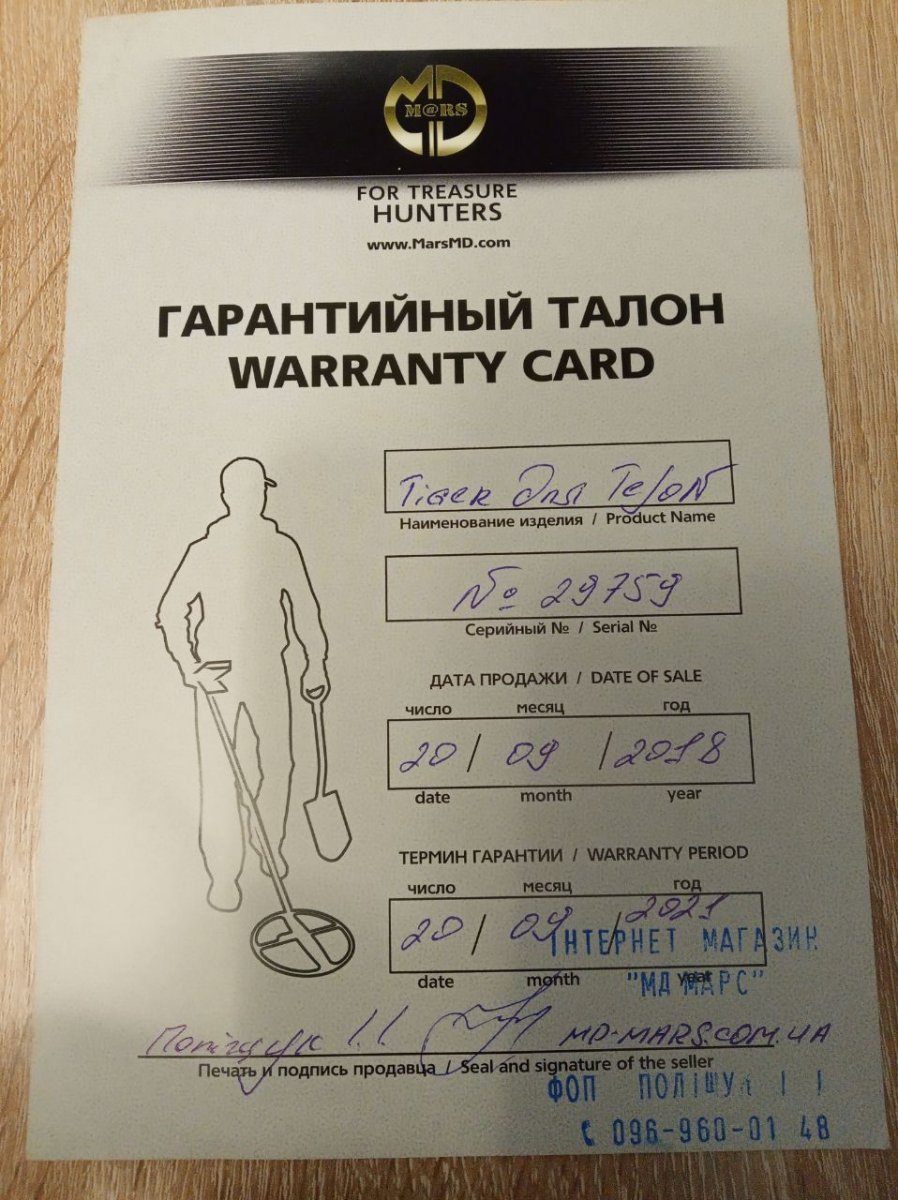 MD
M@RS
FOR TREASURE
HUNTERS
www.MarsMD.com
ГАРАНТИЙНЫЙ ТАЛОН
WARRANTY CARD
Tiger Для Tejon
Наименование изделия / Product Name
№ 29759
Серийный № / Serial №
ДАТА ПРОДАЖИ / DATE OF SALE
число месяц год
20 / 09 / 2018
date month year
ТЕРМИН ГАРАНТИИ / WARRANTY PERIOD
число месяц год
20 / 09 / 2021
ІНТЕРНЕТ МАГАЗИН
date month year
"МД МАРС"
Поліщук І.І. MD-MARS.COM.UA
Печать и подпись продавца / Seal and signature of the seller
ФОП ПОЛІЩУК І І
096-960-01 48